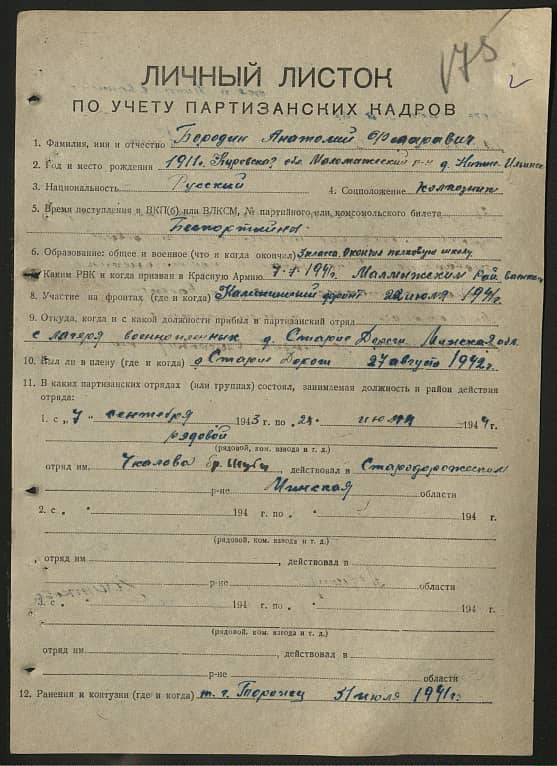 175
2
ЛИЧНЫЙ ЛИСТОК
ПО УЧЕТУ ПАРТИЗАНСКИХ КАДРОВ
1. Фамилия, имя и отчество Бородин Анатолий
2. Год и место рождения 1911 г. обл. р-н д.
3. Национальность Русский 4. Соцположение колхозник
5. Время поступления в ВКП(б) или ВЛКСМ, № партийного или комсомольского билета
Беспартийный
6. Образование: общее и военное (что и когда окончил) школу
7. Каким РВК и когда призван в Красную Армию 1941г. Малмыжским Рай
8. Участие на фронтах (где и когда) Калининский фронт 22 июля 1941г.
9. Откуда, когда и с какой должности прибыл в партизанский отряд
с лагеря военнопленных д. Старые Дороги Минская обл.
10. Был ли в плену (где и когда) Старые Дороги 27 августа 1942г.
11. В каких партизанских отрядах (или группах) состоял, занимаемая должность и район действия
отряда:
1. с „7" сентября 1943 г. по „ июля 1944 г.
рядовой
(рядовой, ком. взвода и т. д.)
отряд им. Чкалова бр. действовал в Стародорожском
р-не Минская области
2. с „ " 194 г. по „ " 194 г.
(рядовой, ком. взвода и т. д.)
отряд им. , действовал в
р-не области
3. с „ " 194 г. по „ " 194 г.
(рядовой, ком. взвода и т. д.)
отряд им. , действовал в
р-не области
12. Ранения и контузии (где и когда) г. Торопец 31 июля 1941г.